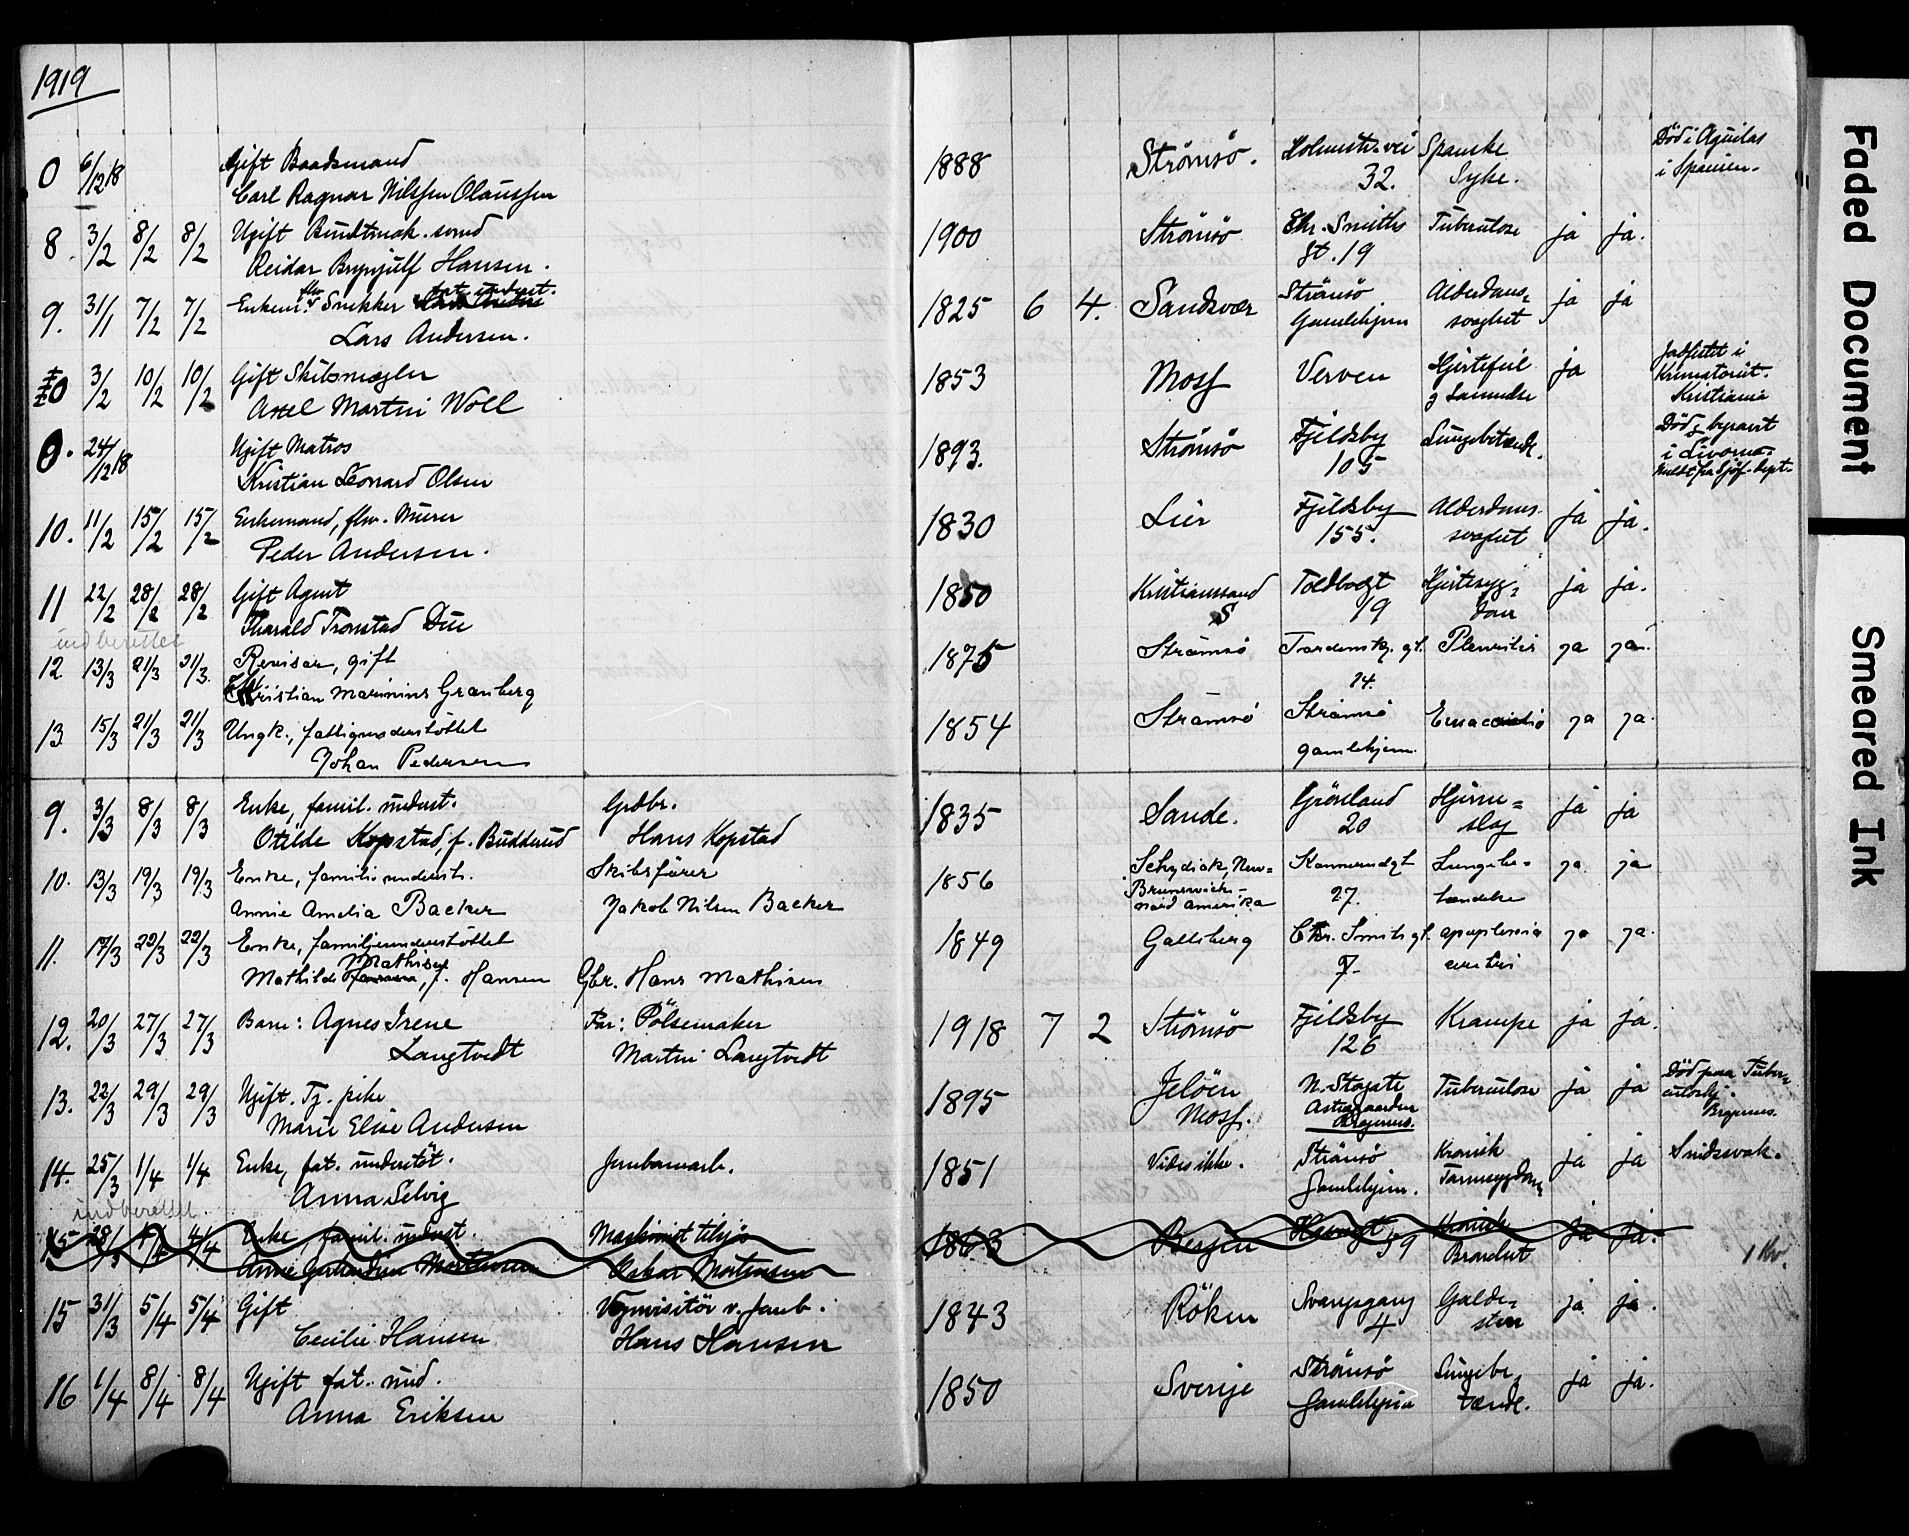 1919
0 6/12 18 Gift Baadsmand 1888 Strömsö. Holmestr.vei Spanske Död i Aguilas
Carl Ragnar Nilssen Olaussen 32. Syke. i Spanien.
8. 3/2 8/2 8/2 Ugift Buntmak. svend 1900 Strömsö Chr. Smiths Tuberkulose ja ja.
Reidar Brynjulf Hansen. gt. 19
9. 31/1 7/2 7/2 Enkem. flv. Snekker fat. underst. 1825 6 4. Sandsvær Strömsö Alderdoms= ja ja
Lars Andersen. Gamlehjem svaghet
10 3/2 10/2 10/2 Gift Skibsmægler 1853 Moss Verven Hjertefeil ja Jordfestet i
Axel Martin Woll Krematoriet.
Kristiania
0. 24/12 18 Ugift Matros 1893. Strömsö Fjeldsby Lungebetænd. Död & begravet
Kristian Leonard Olsen 105 i Livorno.
10. 11/2 15/2 15/2 Enkemand, flv. Murer 1830 Lier Fjeldsby Alderdoms. ja ja.
Peder Andersen. 155. svaghet
11 22/2 28/2 28/2 Gift Agent 1850 Kristianssand Toldbodgt Hjertesyg= ja ja.
Tharald Tronstad Due S 19 dom
indberettet
12 13/3 21/3 21/3. Revisor, gift 1875 Strömsö Tordenskj. gt. Pleuritis ja ja.
Kristian Marinius Granberg 14.
13. 15/3 21/3 21/3 Ungk., fattigunderstöttet 1854 Strömsö Strömsö ja ja.
Johan Pedersen gamlehjem.
9. 3/3 8/3 8/3 Enke, famil. underst. Grdbr. 1835 Sande. Grönland Hjerne= ja ja
Otilde Kopstad, f. Budderud Hans Kopstad 20 slag
10. 13/3 19/3 19/3 Enke, familie underst. Skibsförer 1856 Schydiak, New= Konnerudgt Lungebe= ja ja
Brunswich-
Annie Amelia Backer Jakob Nilsen Backer nord amerika 27. tændelse
11. 17/3 22/3 22/3 Enke, familjeunderstöttet 1849 Galtsberg Chr. Smiths gt. apoplexia ja ja.
Mathisen
Mathilde Hansen, f. Hansen Gbr. Hans Mathisen 7. cerebri
12. 20/3 27/3 27/3 Barn: Agnes Irene Far: Pölsemaker 1918 7 2 Strömsö Fjeldsby Krampe ja ja.
Langtvedt Martin Langtvedt 126
13. 22/3 29/3 29/3 Ugift. Tj. pike 1895 Jelöen N. Storgate Tuberkulose ja ja Död paa Tuber=
Marie Elise Andersen Moss. Astrupgaarden kulosehj.
Bragernes. Bragernes.
14. 25/3 1/4 1/4 Enke, fat. understöt. Jernbanearb. 1851 Vides ikke. Strömsö Kronisk ja ja Sindssvak.
Anna Selvig Gamlehjem. Tarmsygdom
indberettet.
15 28/3 4/4 4/4 Enke, famil. underst. Maskinist tilsjös 1863 Bergen Havnegt 59 Kronisk ja ja.
Anne Mortensen Oskar Mortensen Brandsot 1 Kv.
15 31/3 5/4 5/4 Gift Vognvisitör v. Jernb. 1843 Röken Svangsgang Galde= ja ja.
Cecilie Hansen Hans Hansen 4 sten
16 1/4 8/4 8/4 Ugift fat. und. 1850 Sverige Strömsö Lungebe= ja ja.
Anna Eriksen Gamlehjem tænde.
Faded Document
Smeared Ink